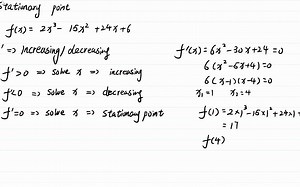 Stationary point
f(x) = 2x³ - 15x² + 24x + 6
' => Increasing/decreasing
f' > 0 => solve x => increasing
f' < 0 => solve x => decreasing
f' = 0 => solve x => stationary point
f'(x) = 6x² - 30x + 24 = 0
6(x² - 5x + 4) = 0
6(x-1)(x-4) = 0
x₁ = 1 x₂ = 4
f(1) = 2×1³ - 15×1² + 24×1
= 17
f(4)